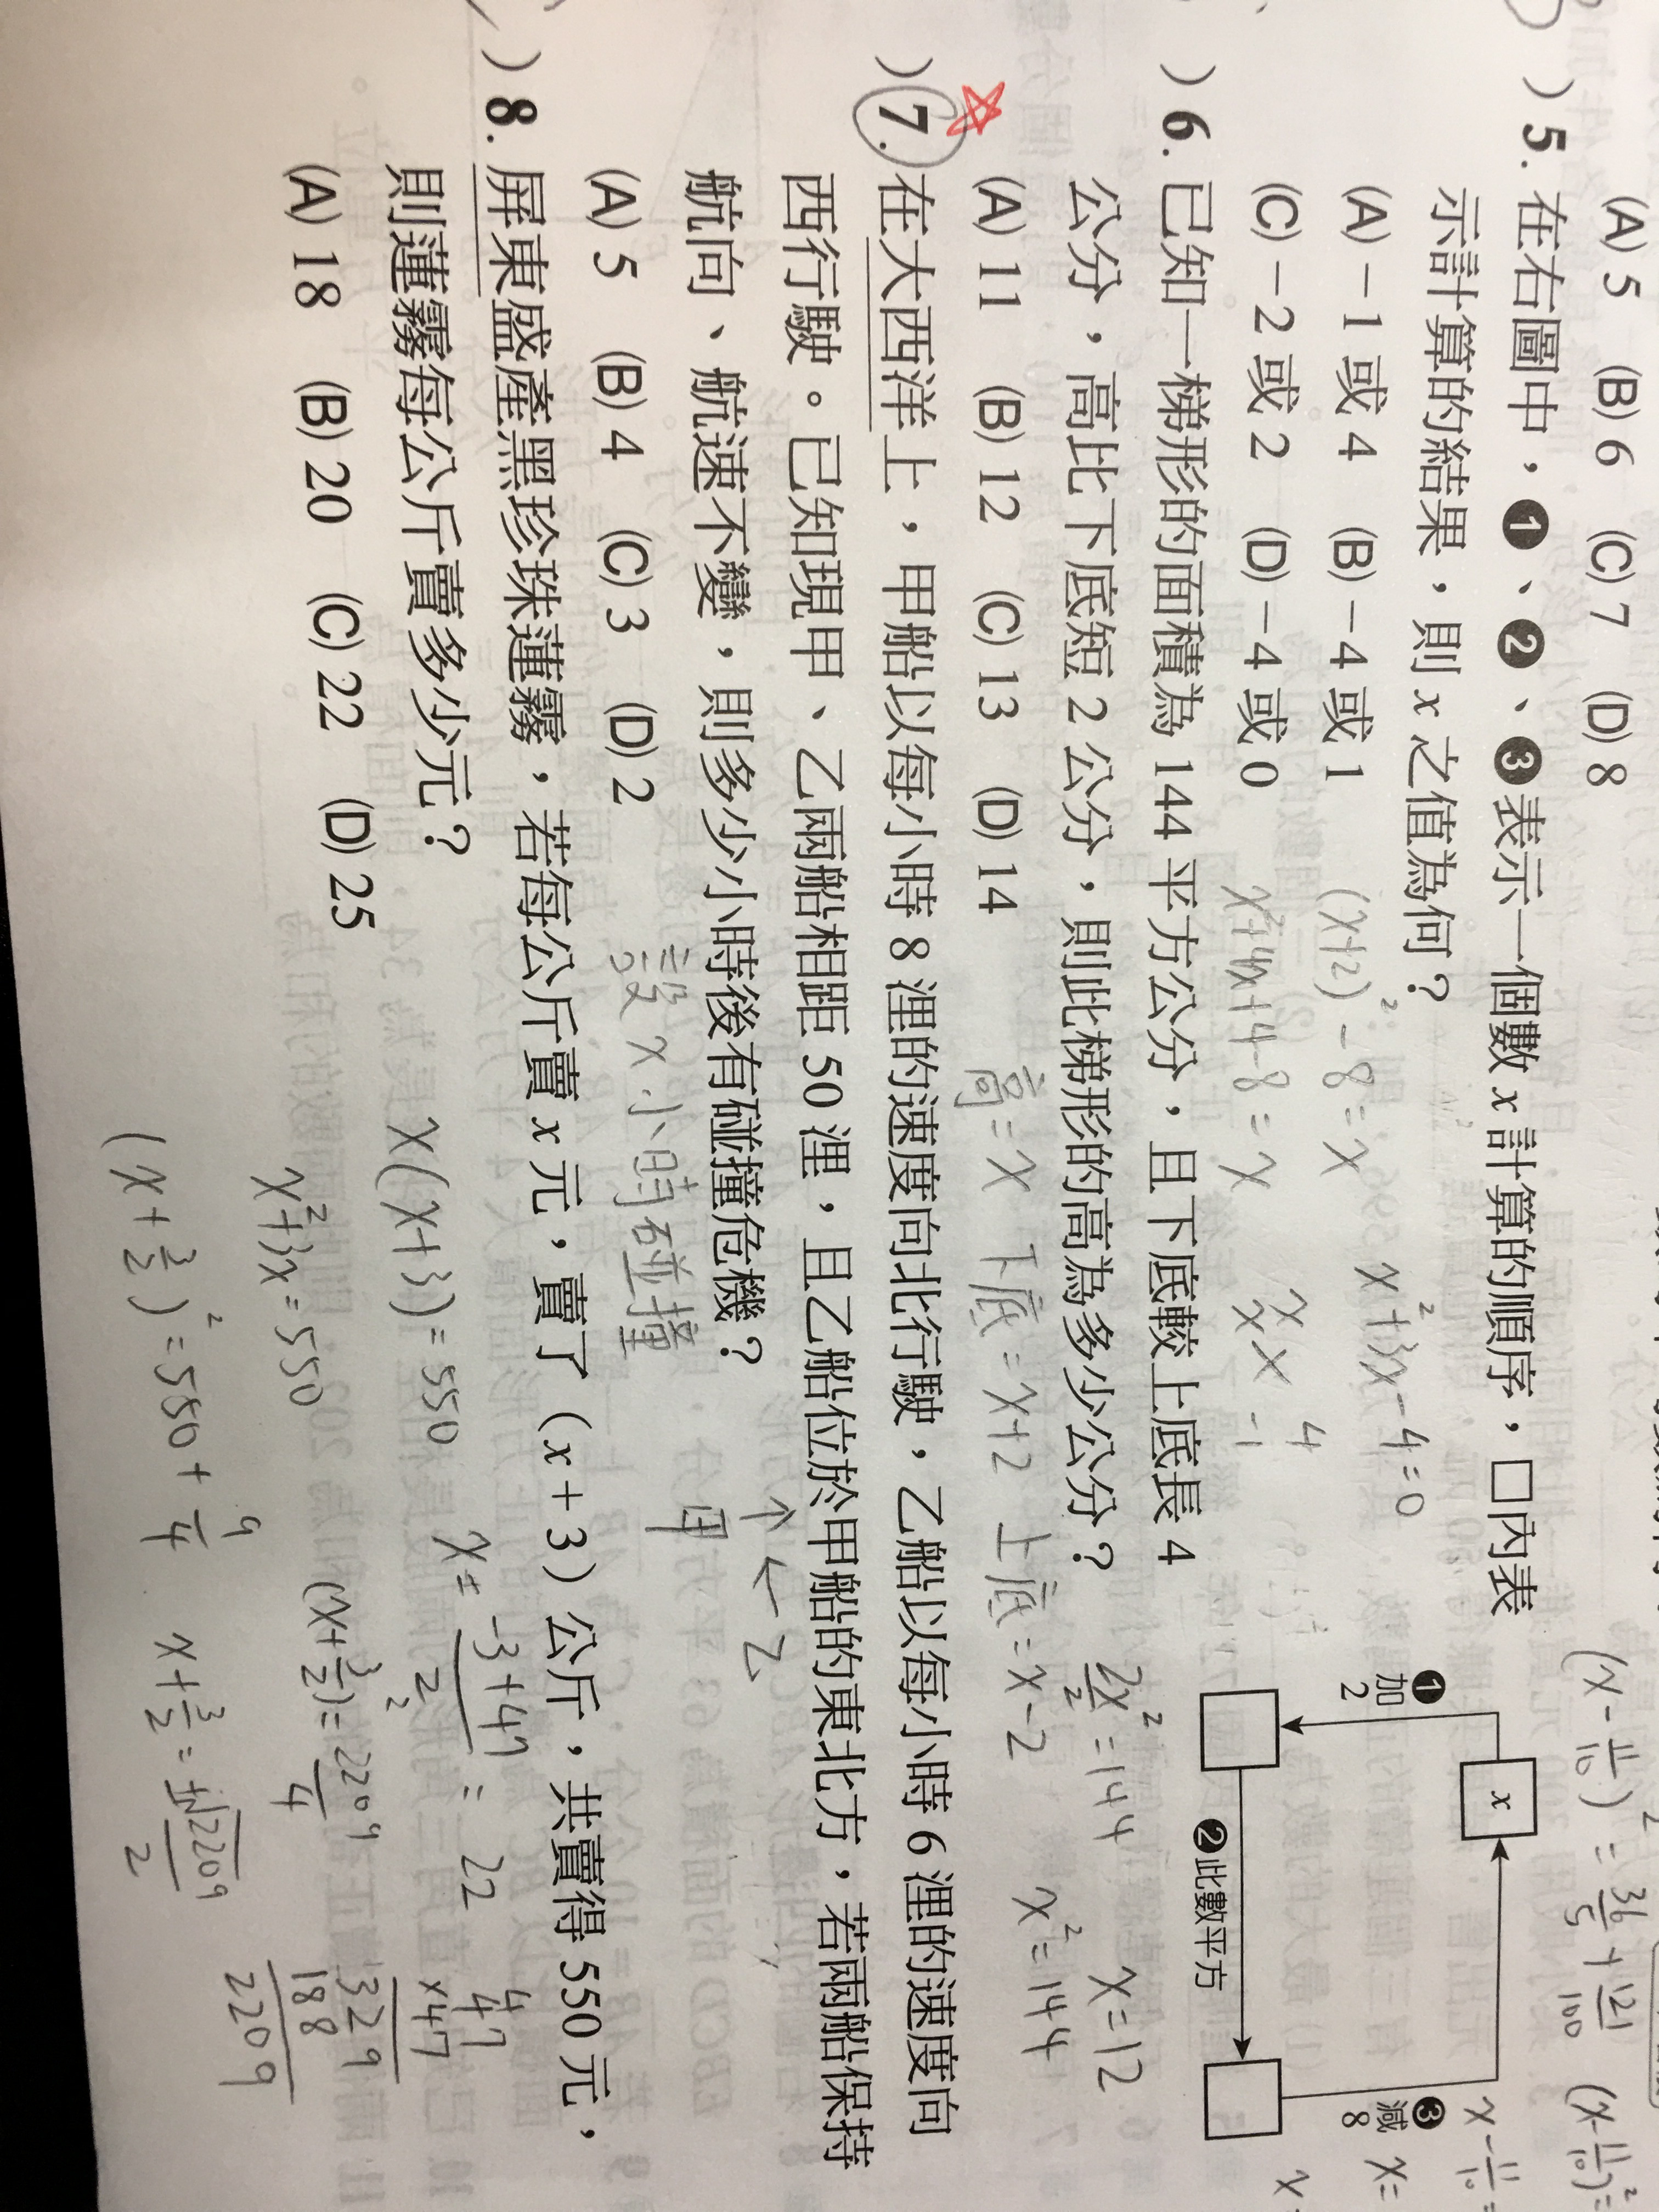 (A) 5 (B) 6 (C) 7 (D) 8
(x - 11/10)² = 36/5 + 121/100
) 5. 在右圖中，❶、❷、❸表示一個數 x 計算的順序，□內表
示計算的結果，則 x 之值為何？
(A) －1 或 4 (B) －4 或 1
(C) －2 或 2 (D) －4 或 0
(x+2)² - 8 = x
x²+4x+4-8 = x
x²+3x-4=0
x 4
x -1
x
❶ 加 2
❷ 此數平方
❸ 減 8
) 6. 已知一梯形的面積為 144 平方公分，且下底較上底長 4
公分，高比下底短 2 公分，則此梯形的高為多少公分？
(A) 11 (B) 12 (C) 13 (D) 14
高 = x 下底 = x+2 上底 = x-2
2x²/2 = 144
x² = 144
x = 12
) 7. 在大西洋上，甲船以每小時 8 浬的速度向北行駛，乙船以每小時 6 浬的速度向
西行駛。已知現甲、乙兩船相距 50 浬，且乙船位於甲船的東北方，若兩船保持
航向、航速不變，則多少小時後有碰撞危機？
(A) 5 (B) 4 (C) 3 (D) 2
設 x 小時碰撞
↑ ← 乙
甲
) 8. 屏東盛產黑珍珠蓮霧，若每公斤賣 x 元，賣了（x + 3）公斤，共賣得 550 元，
則蓮霧每公斤賣多少元？
(A) 18 (B) 20 (C) 22 (D) 25
x(x+3) = 550
x²+3x = 550
(x + 3/2)² = 550 + 9/4
(x+3/2)² = 2209/4
x + 3/2 = ±√2209/2
x = -3+47/2 = 22
47
×47
329
188
2209